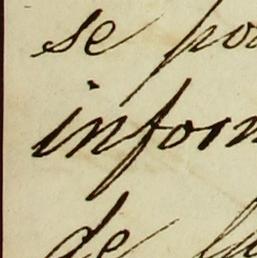 se po
inform
de